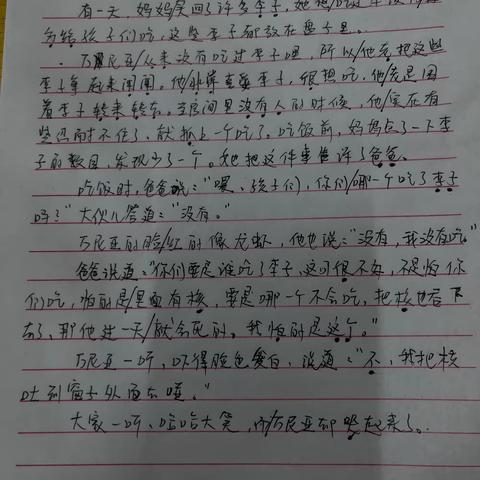 有一天,妈妈买回了许多李子,她想吃过午饭再
分给孩子们吃,这些李子都放在盘子里。
万尼亚/从来没有吃过李子呢,所以他老把这些
李子拿起来闻闻。他/非常喜爱李子,很想吃,他老是围
着李子转来转去。当房间里没有人的时候,他/实在有
些忍耐不住了,就抓上一个吃了。吃饭前,妈妈点了一下李
子的数目,发现少了一个。她把这件事告诉了爸爸。
吃饭时,爸爸说:"嘿、孩子们,你们/哪一个吃了李子
吗?"大伙儿答道:"没有。"
万尼亚的脸/红的像龙虾,他也说:"没有,我没有吃。"
爸爸说道:"你们要是谁吃了李子,这可很不好,不是怕你
们吃,怕的是/里面有核,要是哪一个不会吃,把核也吞下
去了,那他过一天/就会死的。我怕的是这个。"
万尼亚一听,吓得脸色变白,说道:"不,我把核
吐到窗子外面去啦。"
大家一听,哈哈大笑,而万尼亚却哭起来了。